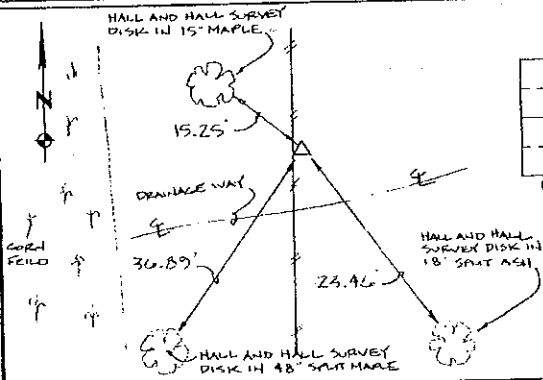 HALL AND HALL SURVEY
DISK IN 15" MAPLE
N
15.25'
DRAINAGE WAY
℄
℄
CORN
FEILD
36.89'
23.46'
HALL AND HALL
SURVEY DISK IN
18" SPLIT ASH
HALL AND HALL SURVEY
DISK IN 48" SPLIT MAPLE